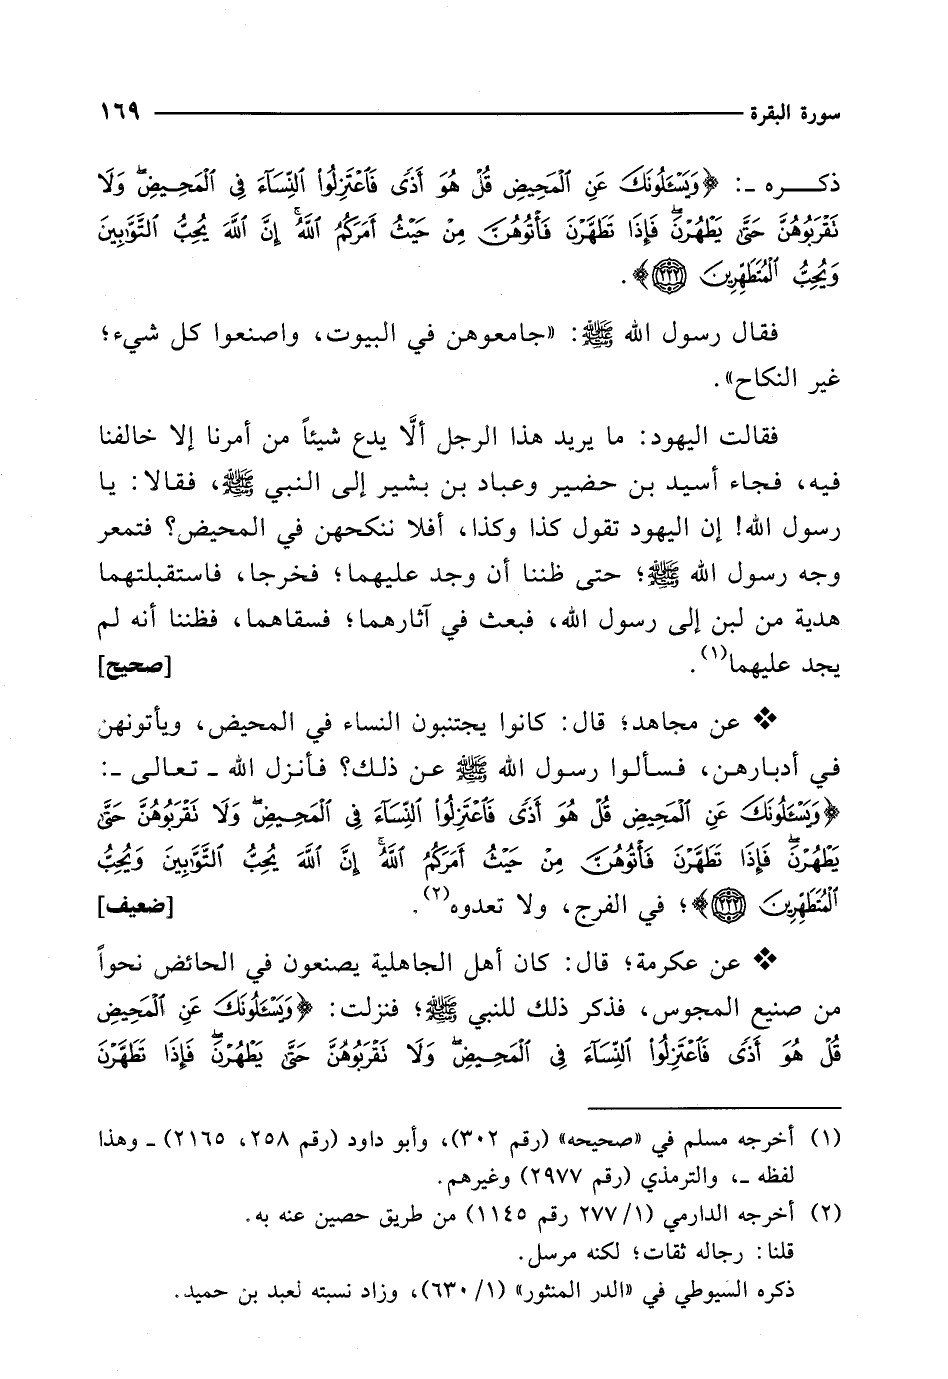 سورة البقرة ١٦٩
ذكـــره ـ: ﴿وَيَسْـَٔلُونَكَ عَنِ ٱلْمَحِيضِ قُلْ هُوَ أَذًى فَٱعْتَزِلُوا۟ ٱلنِّسَآءَ فِى ٱلْمَحِيضِ ۖ وَلَا
تَقْرَبُوهُنَّ حَتَّىٰ يَطْهُرْنَ ۖ فَإِذَا تَطَهَّرْنَ فَأْتُوهُنَّ مِنْ حَيْثُ أَمَرَكُمُ ٱللَّهُ ۚ إِنَّ ٱللَّهَ يُحِبُّ ٱلتَّوَّٰبِينَ
وَيُحِبُّ ٱلْمُتَطَهِّرِينَ ﴿٢٢٢﴾﴾.
فقال رسول الله ﷺ: «جامعوهن في البيوت، واصنعوا كل شيء؛
غير النكاح».
فقالت اليهود: ما يريد هذا الرجل ألَّا يدع شيئاً من أمرنا إلا خالفنا
فيه، فجاء أسيد بن حضير وعباد بن بشير إلى النبي ﷺ، فقالا: يا
رسول الله! إن اليهود تقول كذا وكذا، أفلا ننكحهن في المحيض؟ فتمعر
وجه رسول الله ﷺ؛ حتى ظننا أن وجد عليهما؛ فخرجا، فاستقبلتهما
هدية من لبن إلى رسول الله، فبعث في آثارهما؛ فسقاهما، فظننا أنه لم
يجد عليهما(١). [صحيح]
❖ عن مجاهد؛ قال: كانوا يجتنبون النساء في المحيض، ويأتونهن
في أدبارهن، فسألوا رسول الله ﷺ عن ذلك؟ فأنزل الله ـ تعالى ـ:
﴿وَيَسْـَٔلُونَكَ عَنِ ٱلْمَحِيضِ قُلْ هُوَ أَذًى فَٱعْتَزِلُوا۟ ٱلنِّسَآءَ فِى ٱلْمَحِيضِ ۖ وَلَا تَقْرَبُوهُنَّ حَتَّىٰ
يَطْهُرْنَ ۖ فَإِذَا تَطَهَّرْنَ فَأْتُوهُنَّ مِنْ حَيْثُ أَمَرَكُمُ ٱللَّهُ ۚ إِنَّ ٱللَّهَ يُحِبُّ ٱلتَّوَّٰبِينَ وَيُحِبُّ
ٱلْمُتَطَهِّرِينَ ﴿٢٢٢﴾﴾؛ في الفرج، ولا تعدوه(٢). [ضعيف]
❖ عن عكرمة؛ قال: كان أهل الجاهلية يصنعون في الحائض نحواً
من صنيع المجوس، فذكر ذلك للنبي ﷺ؛ فنزلت: ﴿وَيَسْـَٔلُونَكَ عَنِ ٱلْمَحِيضِ
قُلْ هُوَ أَذًى فَٱعْتَزِلُوا۟ ٱلنِّسَآءَ فِى ٱلْمَحِيضِ ۖ وَلَا تَقْرَبُوهُنَّ حَتَّىٰ يَطْهُرْنَ ۖ فَإِذَا تَطَهَّرْنَ
(١) أخرجه مسلم في «صحيحه» (رقم ٣٠٢)، وأبو داود (رقم ٢٥٨، ٢١٦٥) ـ وهذا
لفظه ـ، والترمذي (رقم ٢٩٧٧) وغيرهم.
(٢) أخرجه الدارمي (١/ ٢٧٧ رقم ١١٤٥) من طريق حصين عنه به.
قلنا: رجاله ثقات؛ لكنه مرسل.
ذكره السيوطي في «الدر المنثور» (١/ ٦٣٠)، وزاد نسبته لعبد بن حميد.